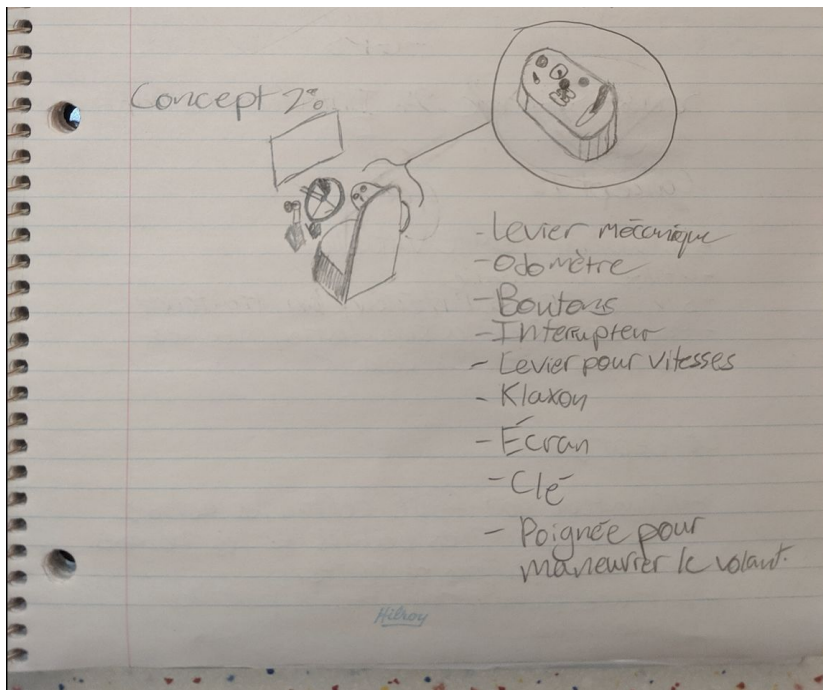 Concept 2:
- Levier mécanique
- Odomètre
- Boutons
- Interrupteur
- Levier pour vitesses
- Klaxon
- Écran
- Clé
- Poignée pour
maneuvrer le volant.
Hilroy